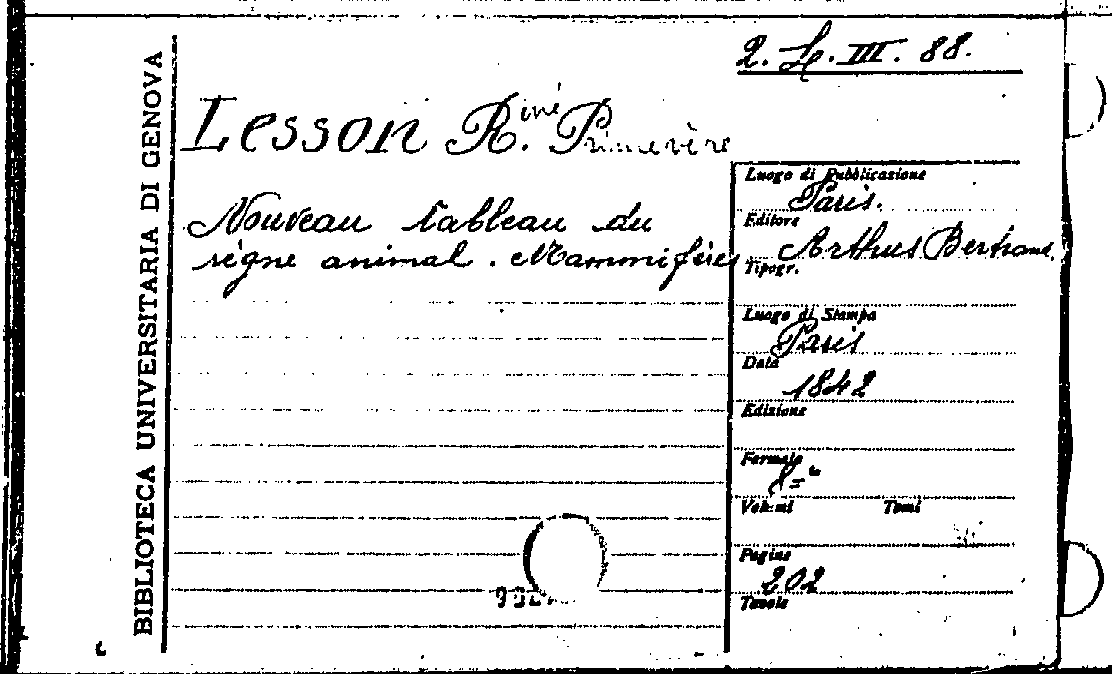 2. L. III. 88.
BIBLIOTECA UNIVERSITARIA DI GENOVA
Lesson R.iné Primevère
Nouveau tableau du
règne animal. Mammifères
Luogo di Pubblicazione
Paris.
Editore
Arthus Bertrand.
Tipogr.
Luogo di Stampa
Paris
Data
1842
Edizione
Formato
8=°
Volumi Tomi
Pagine
202
Tavole